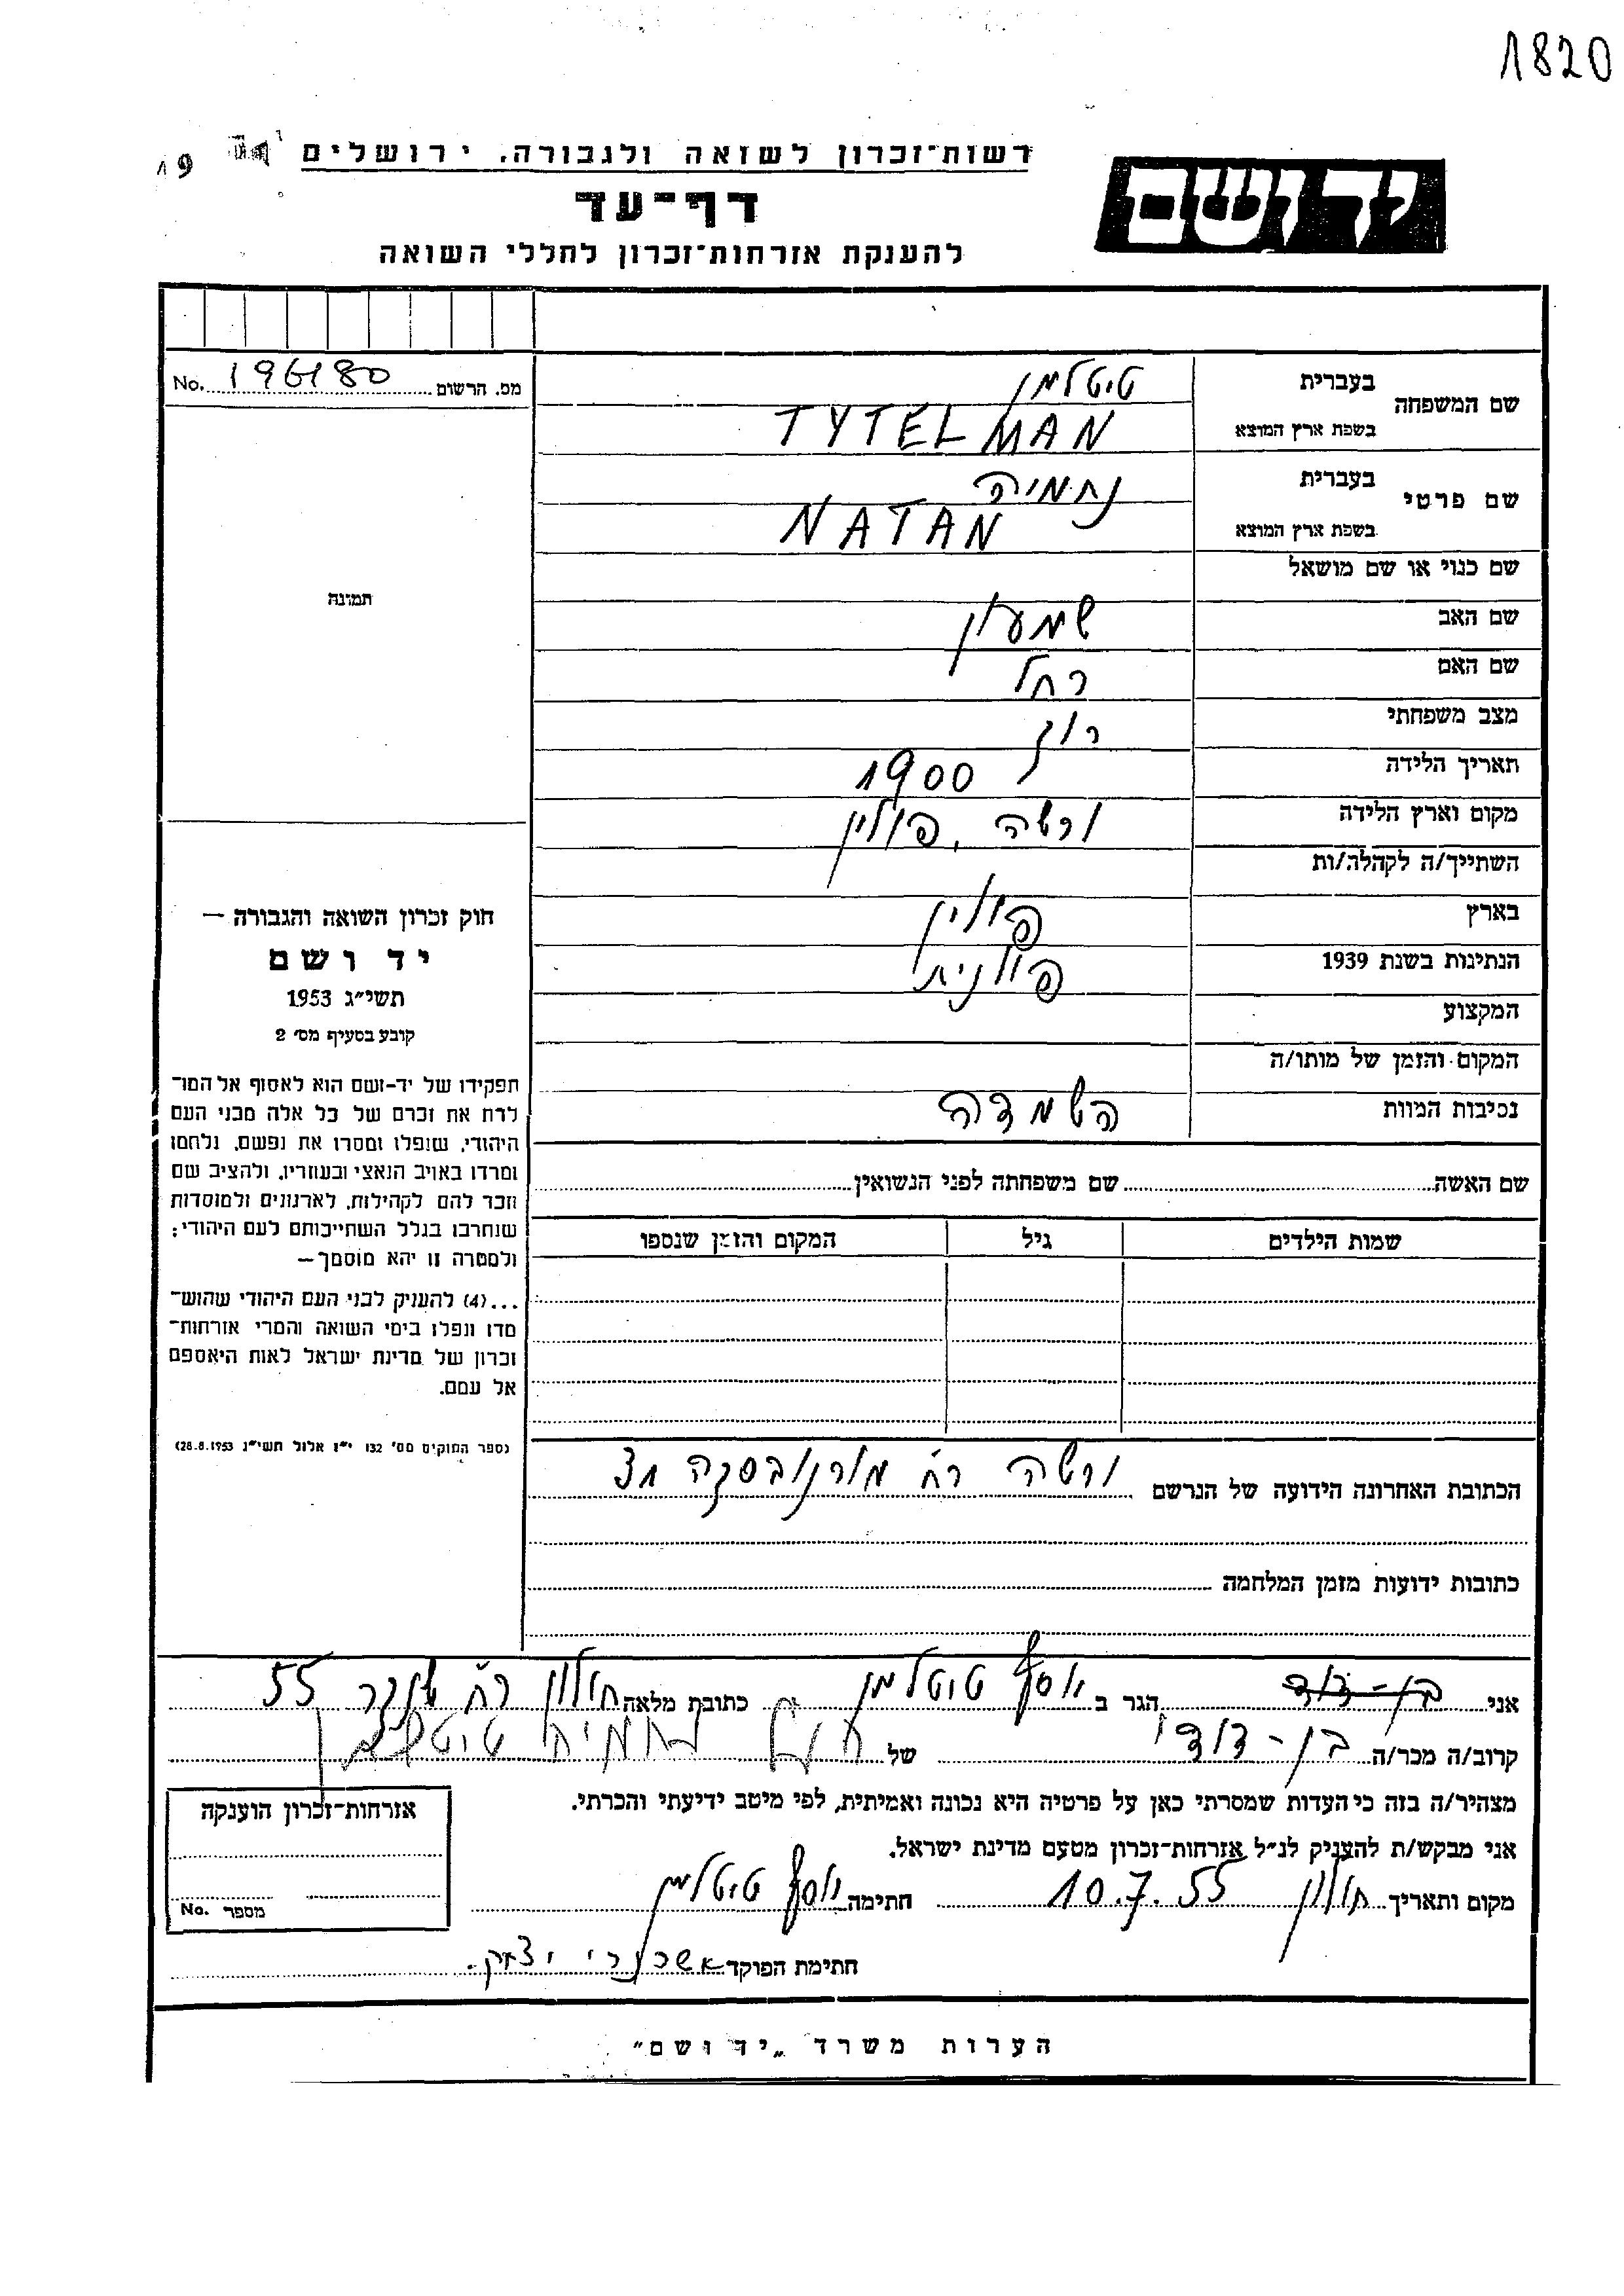 1820
רשות־זכרון לשואה ולגבורה, ירושלים
19
יד ושם
דף־עד
להענקת אזרחות־זכרון לחללי השואה
מס. הרשום No.
שם המשפחה
בעברית טיטלמן
בשפת ארץ המוצא TYTELMAN
שם פרטי
בעברית נחמיה
בשפת ארץ המוצא NATAN
שם כנוי או שם מושאל
שם האב שמעון
שם האם רחל
מצב משפחתי רוק
תאריך הלידה 1900
מקום וארץ הלידה ורשה, פולין
השתייך/ה לקהלה/ות
בארץ פולין
הנתינות בשנת 1939 פולנית
המקצוע
המקום והזמן של מותו/ה
נסיבות המוות השמדה
תמונה
חוק זכרון השואה והגבורה —
יד ושם
תשי״ג 1953
קובע בסעיף מס׳ 2
תפקידו של יד-ושם הוא לאסוף אל המו־
לדת את זכרם של כל אלה מבני העם
היהודי, שנפלו ומסרו את נפשם, נלחמו
ומרדו באויב הנאצי ובעוזריו, ולהציב שם
וזכר להם לקהילות, לארגונים ולמוסדות
שנחרבו בגלל השתייכותם לעם היהודי;
ולמטרה זו יהא מוסמך—
...(4) להעניק לבני העם היהודי שהוש־
מדו ונפלו בימי השואה והמרי אזרחות־
זכרון של מדינת ישראל לאות היאספם
אל עמם.
(ספר החוקים מס׳ 132 י״ז אלול תשי״ג 28.8.1953)
שם האשה שם משפחתה לפני הנשואין
שמות הילדים גיל המקום והזמן שנספו
הכתובת האחרונה הידועה של הנרשם ורשה רח׳ מורנובסקה
כתובות ידועות מזמן המלחמה
אני בן-דוד הגר ב יוסף טיטלמן כתובת מלאה חולון רח׳ שנקר 55
קרוב/ה מכר/ה בן-דודי של נחמיה טיטלמן
מצהיר/ה בזה כי העדות שמסרתי כאן על פרטיה היא נכונה ואמיתית, לפי מיטב ידיעתי והכרתי.
אני מבקש/ת להעניק לנ״ל אזרחות־זכרון מטעם מדינת ישראל.
מקום ותאריך חולון 10.7.55 חתימה יוסף טיטלמן
חתימת הפוקד יצחק
אזרחות־זכרון הוענקה
מספר No.
הערות משרד „יד ושם״